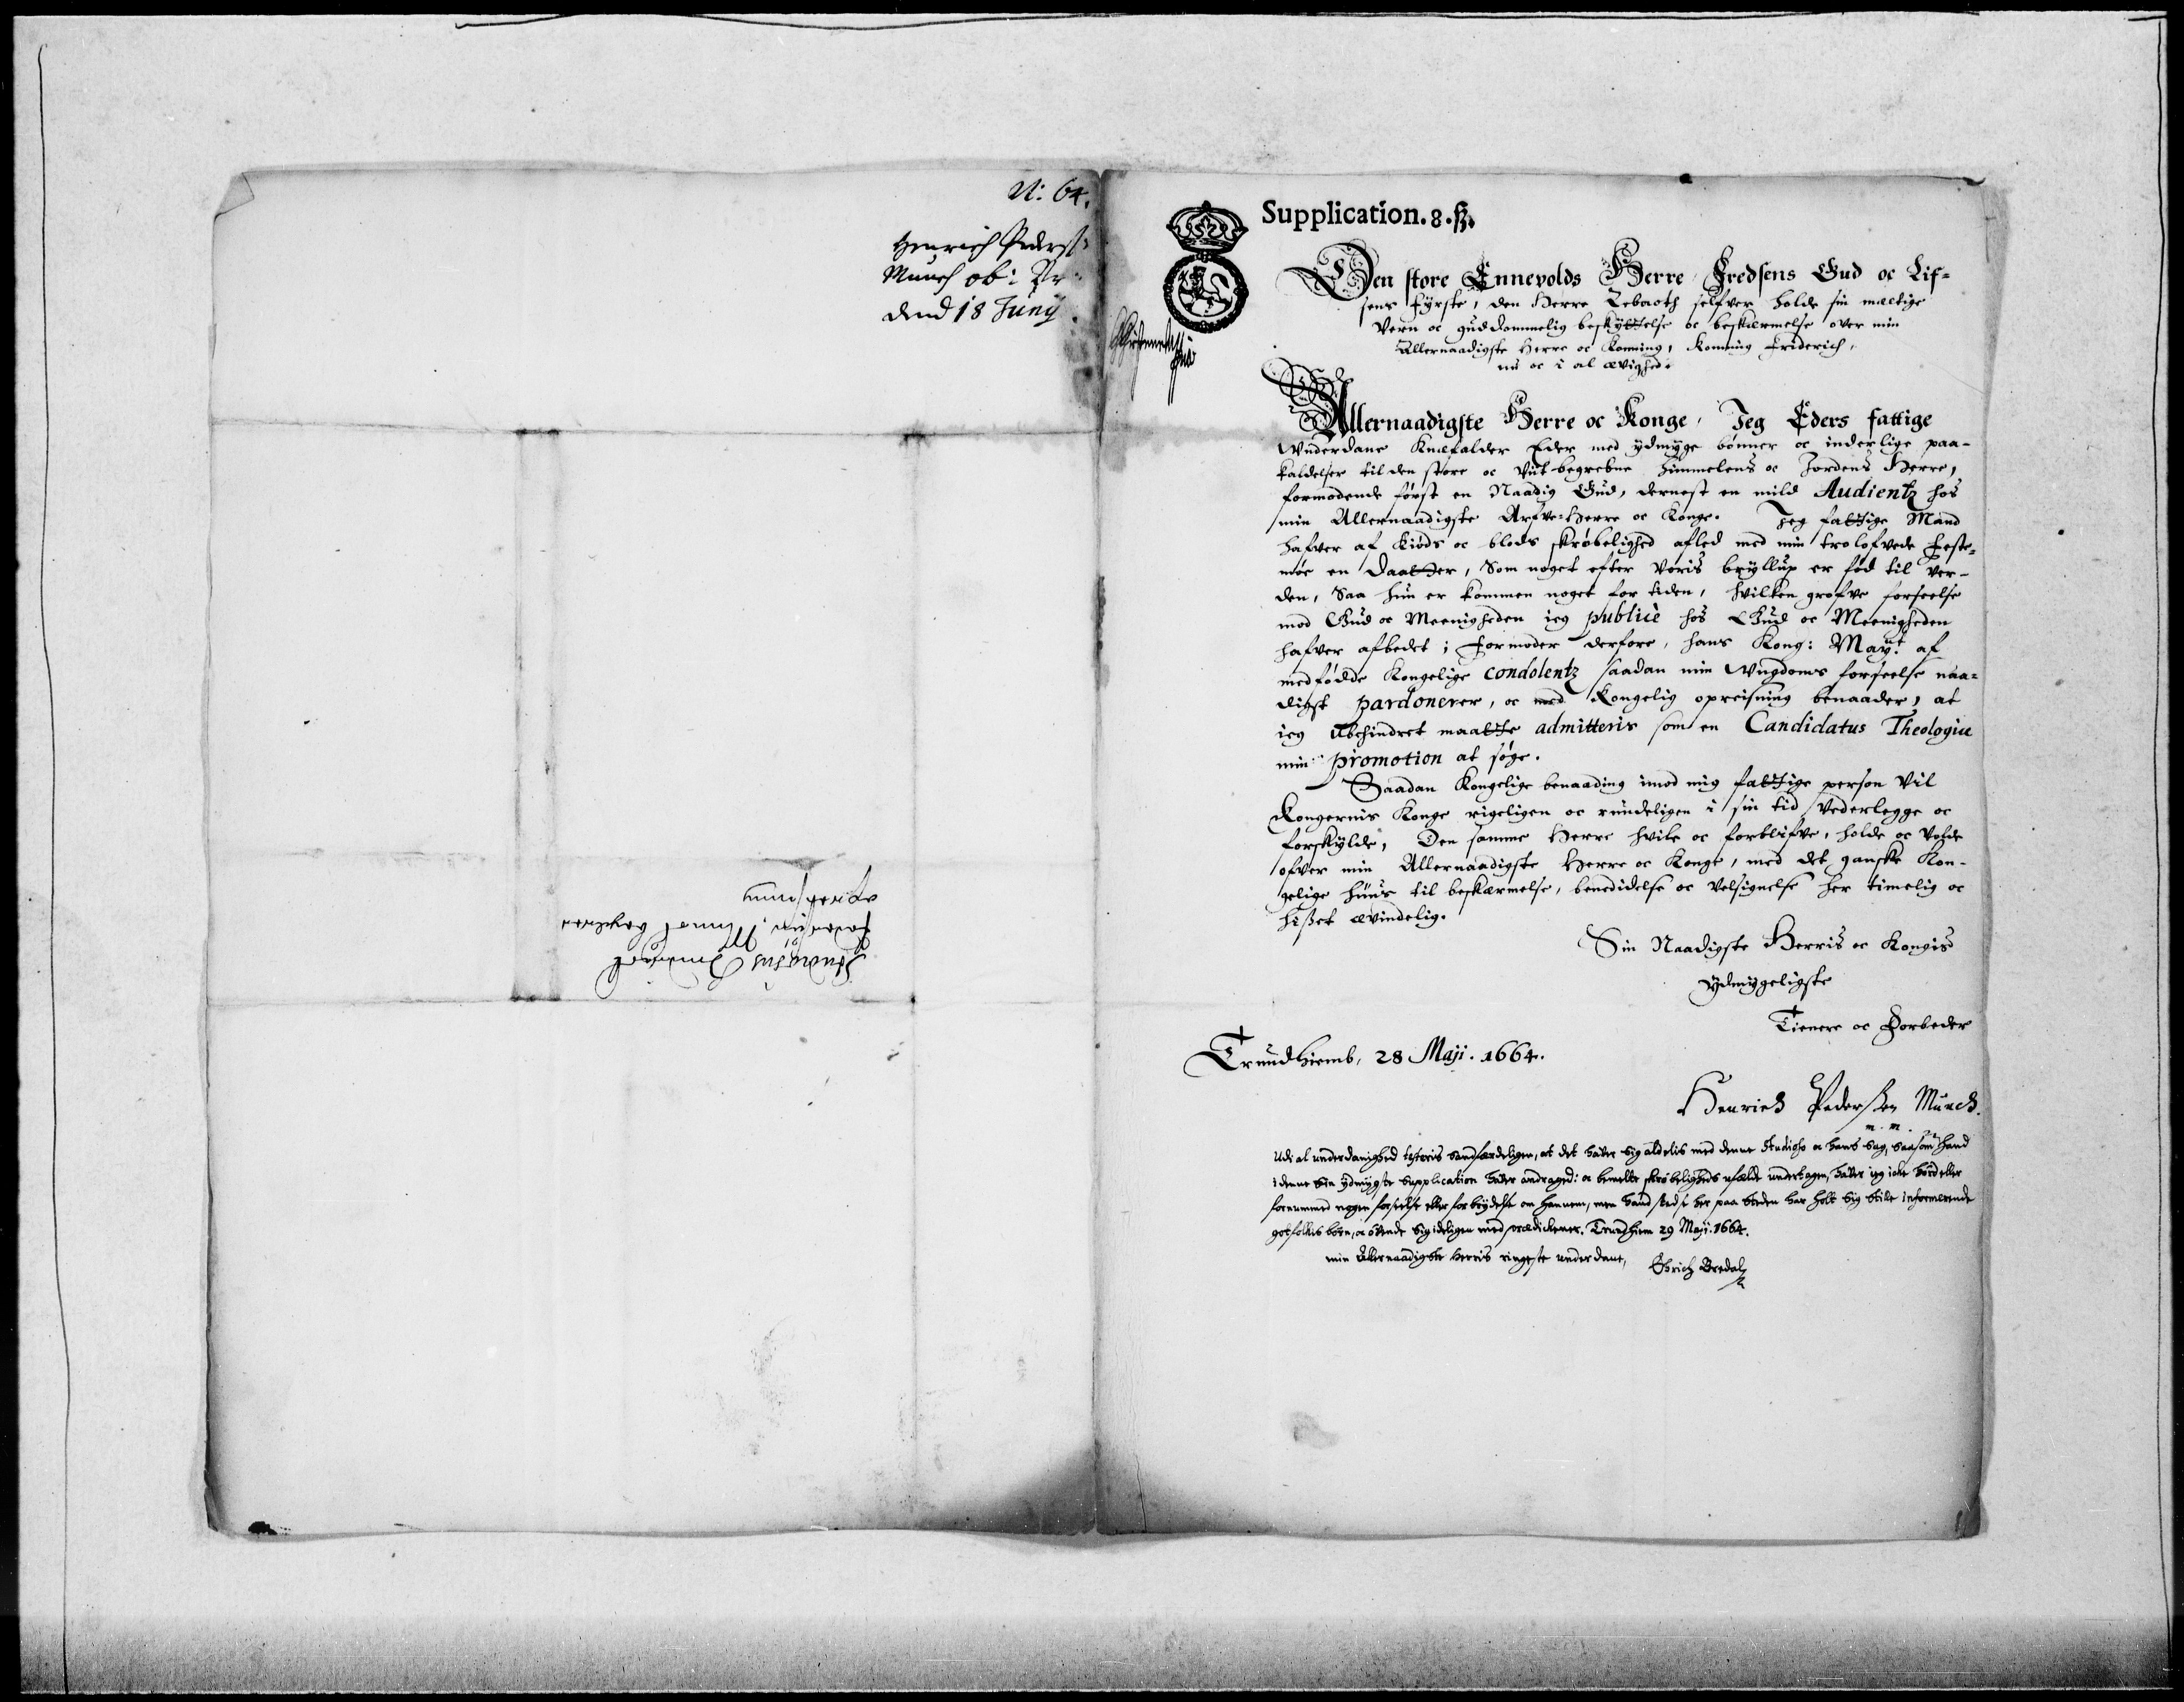 N: 64.
Henrich Pederss:
Munch ob:
dend 18 Junij.
Studiosus Trund
begierer
opreisning
Supplication. 8. ß.
Den store Ennevolds Herre Fredsens Gud oc Lif-
sens Fyrste, den Herre Zebaoth selfver holde sin mectige
Vern oc guddommelig beskyttelse oc beskermelse over min
Allernaadigste Herre oc Konning, Konning Friderich,
nu oc i al ævighed.
Allernaadigste Herre oc Konge, Jeg Eders fattige
Wnderdane Knæfalder Eder med ydmyge bønner oc inderlige paa-
kaldelser til den store oc Vut-begrebne Himmelens oc Jordens Herre,
formodende først en Naadig Gud, dernest en mild Audientz hos
min Allernaadigste Arfve-Herre oc Konge. Jeg fattige Mand
hafver af Kiøds oc blods skrøbelighed afled med min trolofvede Feste-
møe en Daatter, Som noget efter Voris bryllup er fød til Ver-
den, Saa hun er kommen noget for tiden, hvilken grofve forseelse
mod Gud oc Meenigheden ieg publicè hos Gud oc Meenigheden
hafver afbedet; Formoder derfore, hans Kong: Mayt: af
medfødde Kongelige condolentz saadan min Wngdoms forseelse naa-
digst pardonerer, oc med Kongelig opreisning benaader, at
ieg Ubehindret maatte admitteris som en Candidatus Theologiæ
min promotion at søge.
Saadan Kongelige benaading imod mig fattige person Vil
Kongernis Konge rigeligen oc rundeligen i sin tid Vederlegge oc
forskylde, Den samme Herre hvile oc forblifve, holde oc Volde
ofver min Allernaadigste Herre oc Konge, med det ganske Kon-
gelige Huus til beskermelse, benedidelse oc Velsignelse her timelig oc
hisset ævindelig.
Sin Naadigste Herris oc Kongis
ydmygeligste
Tienere oc Forbeder
Trundhiemb, 28 Maji. 1664.
Henrich Pederssen Munch.
m. m.
Udi al underdanighed testeris sandfærdeligen, at det hafver sig aldelis med denne Studioso oc hans Sag, saasom hand
i denne sin ydmygste Supplication hafver andraged: oc bemelte skrøbeligheds ufælde undertagen, hafver ieg icke hørd eller
fornummed nogen forseelse eller forbrydelse om hannem, men hand stedse her paa Steden har holt sig stille informerende
got folkis børn, oc øvende sig ideligen med prædickener. Trundhiem 29 Maij. 1664.
min Allernaadigste Herris ringeste underdane, Ehrich Bredal